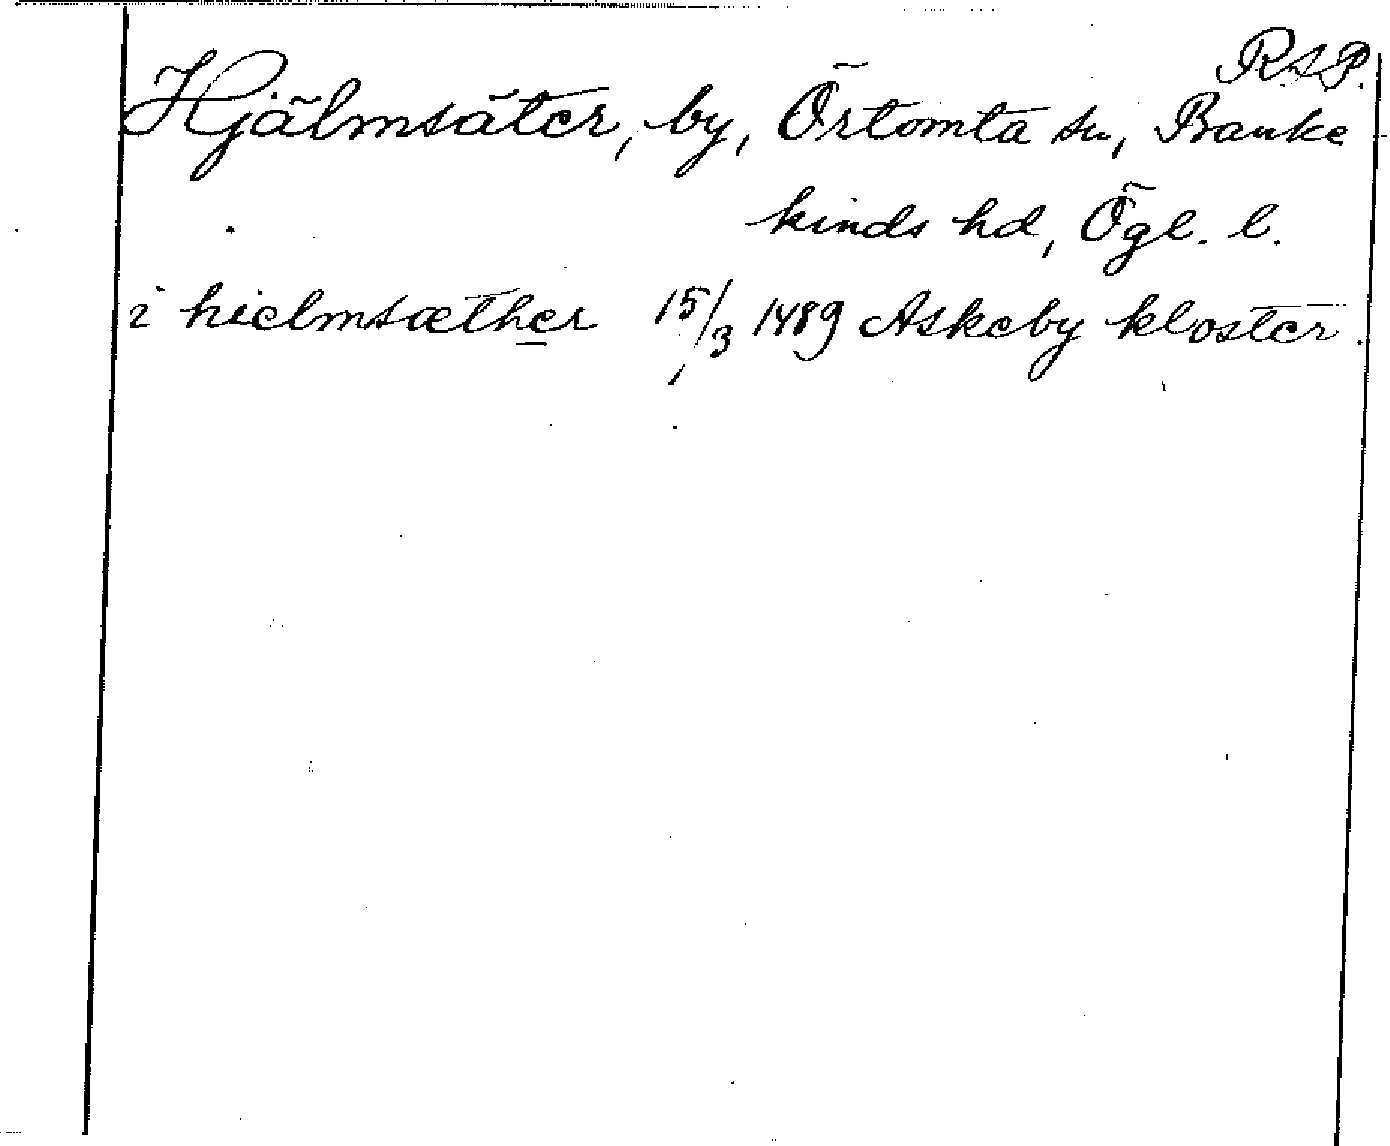 R.A.P.
Hjälmsäter, by, Örtomta sn, Banke
kinds hd, Ögl. l.
i hielmsæther 15/3 1489 Askeby kloster.